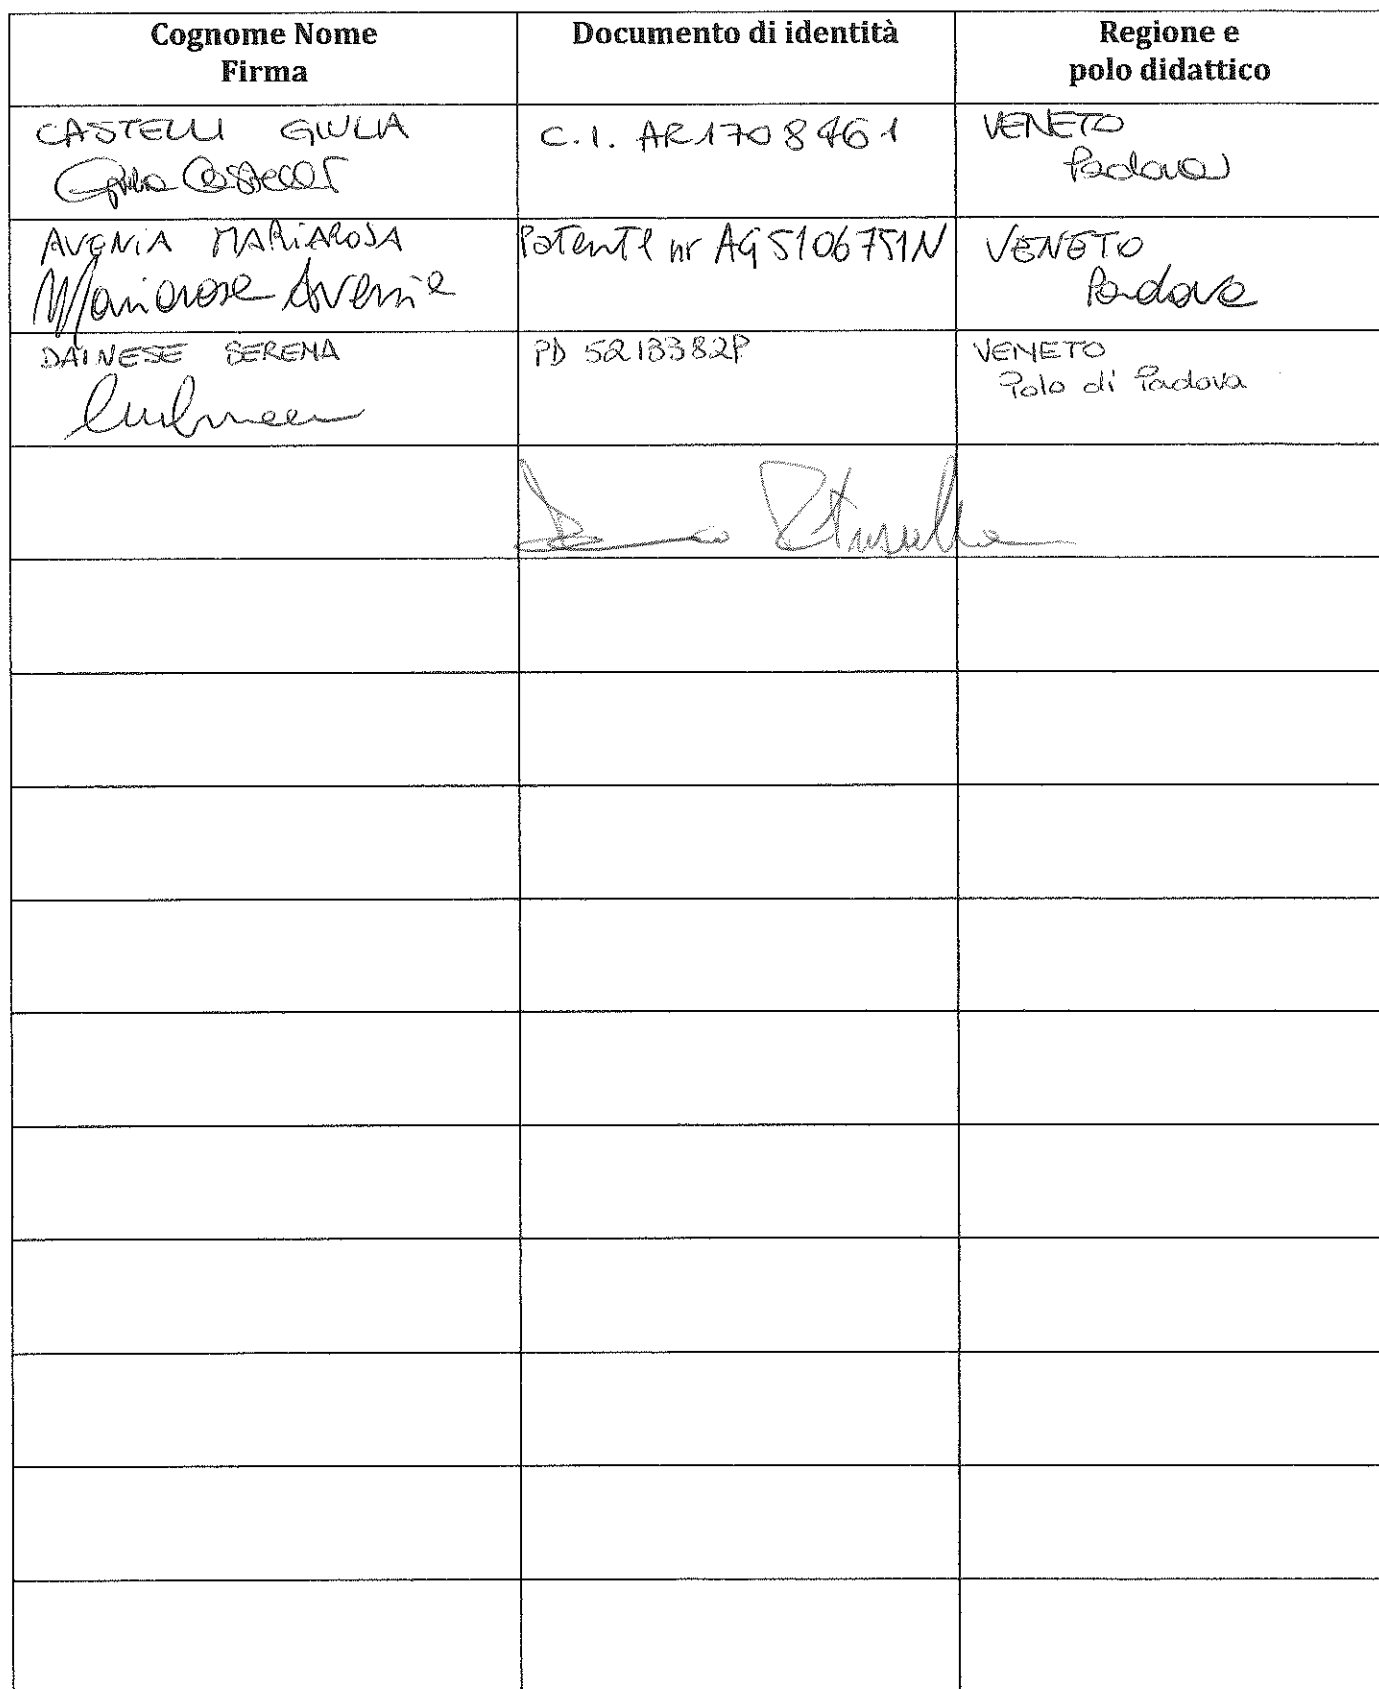 Cognome Nome
Firma
Documento di identità
Regione e
polo didattico
CASTELLI GIULIA
Giulia Castelli
C.I. AR1708461
VENETO
Padova
AVENIA MARIAROSA
Mariarosa Avenia
Patente nr AG5106751N
VENETO
Padova
DAINESE SERENA
PD 5213382P
VENETO
Polo di Padova